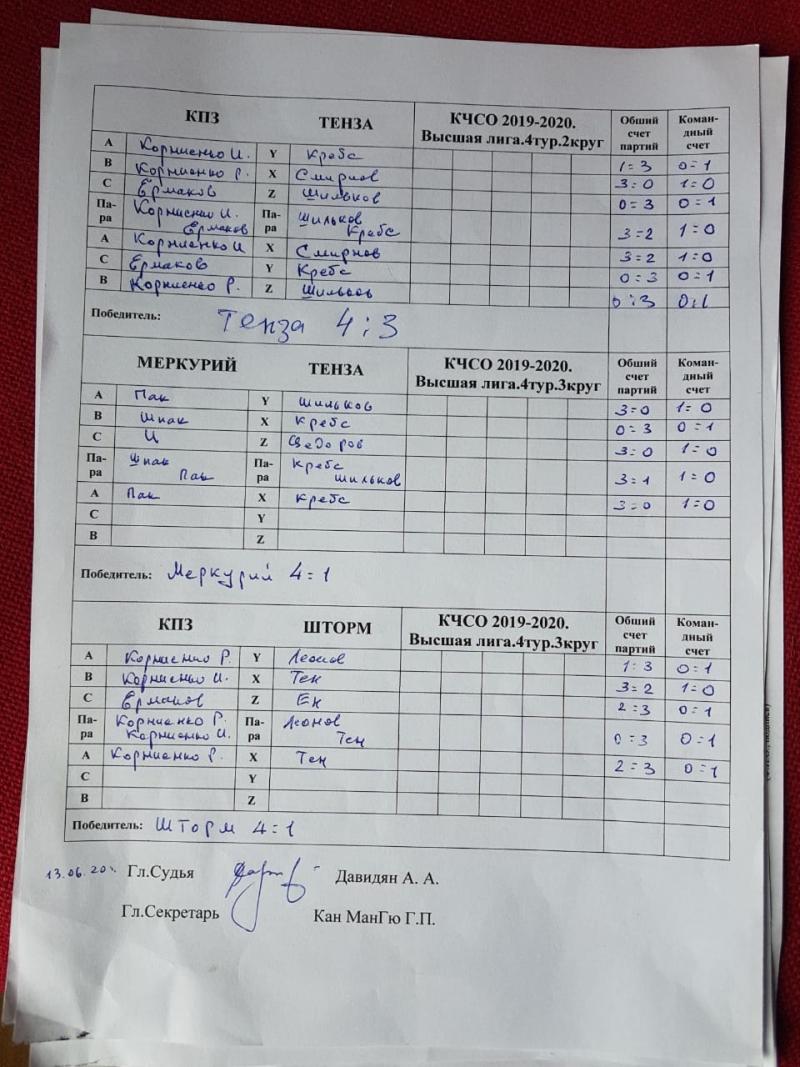 КПЗ ТЕНЗА КЧСО 2019-2020. Высшая лига.4тур.2круг Обший счет партий Коман-дный счет
A Корниенко И. Y Кребс 1:3 0:1
B Корниенко Р. X Смирнов 3:0 1:0
C Ермаков Z Шильков 0:3 0:1
Па-ра Корниенко И. Ермаков Па-ра Шильков Кребс 3:2 1:0
A Корниенко И X Смирнов 3:2 1:0
C Ермаков Y Кребс 0:3 0:1
B Корниенко Р. Z Шильков 0:3 0:1
Победитель: Тенза 4:3
МЕРКУРИЙ ТЕНЗА КЧСО 2019-2020. Высшая лига.4тур.3круг Обший счет партий Коман-дный счет
A Пак Y Шильков 3:0 1:0
B Шпак X Кребс 0:3 0:1
C Ц Z Федоров 3:0 1:0
Па-ра Шпак Пак Па-ра Кребс Шильков 3:1 1:0
A Пак X Кребс 3:0 1:0
C Y
B Z
Победитель: Меркурий 4:1
КПЗ ШТОРМ КЧСО 2019-2020. Высшая лига.4тур.3круг Обший счет партий Коман-дный счет
A Корниенко Р. Y Леонов 1:3 0:1
B Корниенко И. X Тен 3:2 1:0
C Ермаков Z Ен 2:3 0:1
Па-ра Корниенко Р. Корниенко И. Па-ра Леонов Тен 0:3 0:1
A Корниенко Р. X Тен 2:3 0:1
C Y
B Z
Победитель: Шторм 4:1
13.06.20г. Гл.Судья Давидян А. А.
Гл.Секретарь Кан МанГю Г.П.